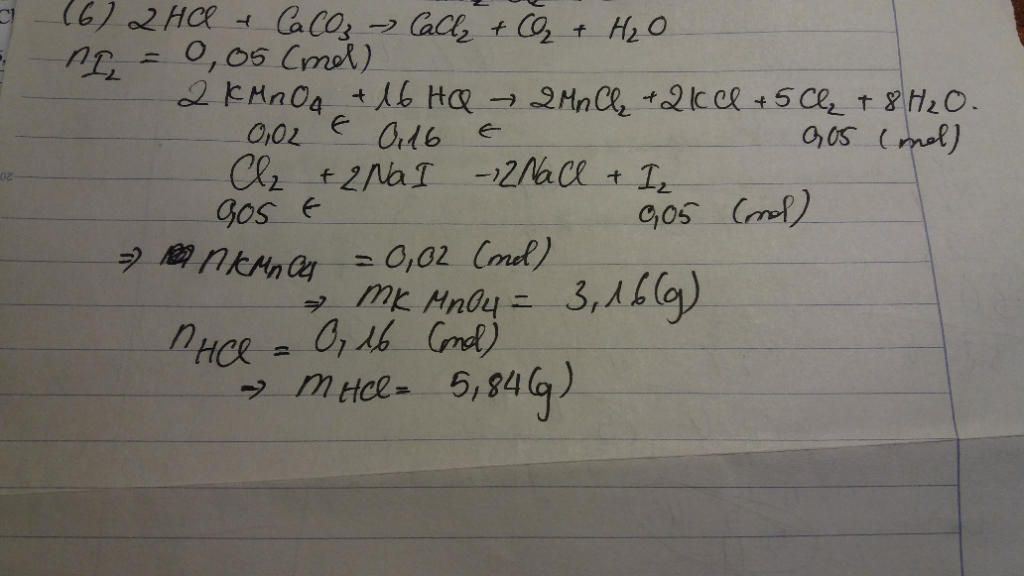 (6) 2HCl + CaCO₃ → CaCl₂ + CO₂ + H₂O
nI₂ = 0,05 (mol)
2KMnO₄ + 16HCl → 2MnCl₂ + 2KCl + 5Cl₂ + 8H₂O.
0,02 ← 0,16 ← 0,05 (mol)
Cl₂ + 2NaI → 2NaCl + I₂
0,05 ← 0,05 (mol)
⇒ nKMnO₄ = 0,02 (mol)
⇒ mKMnO₄ = 3,16(g)
nHCl = 0,16 (mol)
⇒ mHCl = 5,84(g)